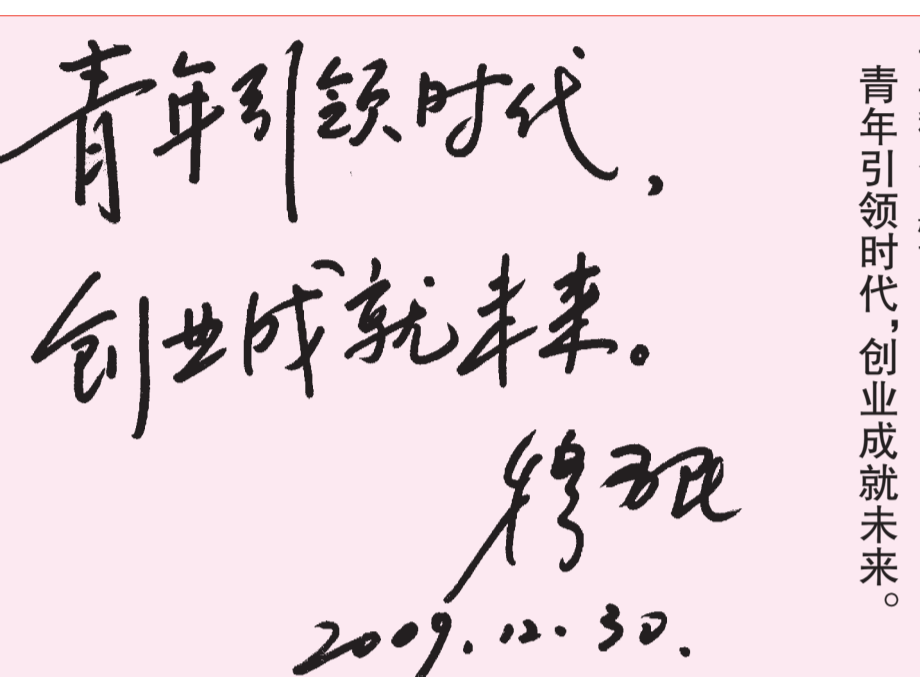 青年引领时代，
创业成就未来。
2009.12.30.
青年引领时代，创业成就未来。